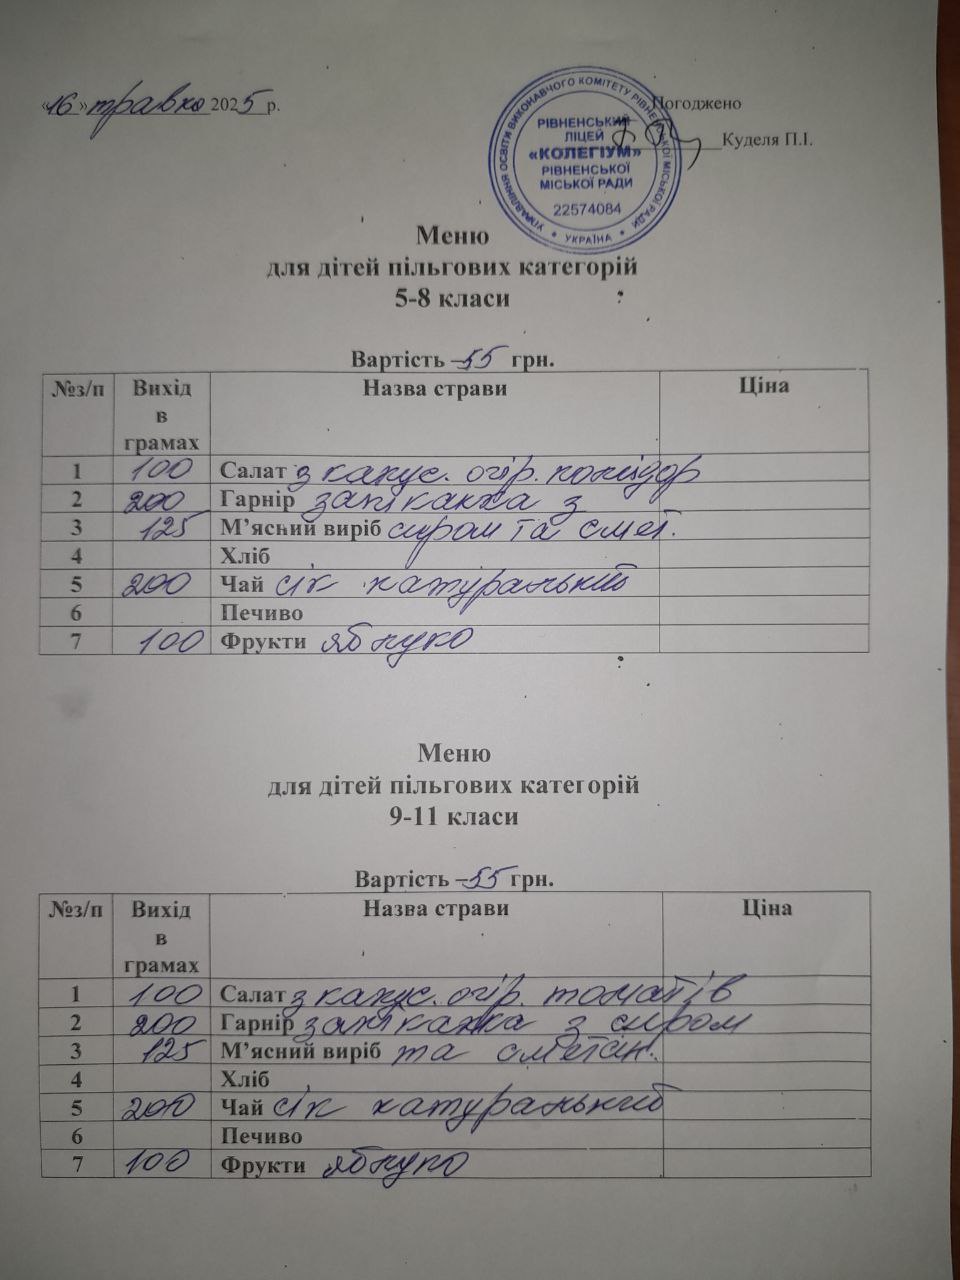 «16» травня 2025 р.
Погоджено
Куделя П.І.
УПРАВЛІННЯ ОСВІТИ ВИКОНАВЧОГО КОМІТЕТУ РІВНЕНСЬКОЇ МІСЬКОЇ РАДИ
РІВНЕНСЬКИЙ
ЛІЦЕЙ
«КОЛЕГІУМ»
РІВНЕНСЬКОЇ
МІСЬКОЇ РАДИ
22574084
* УКРАЇНА *
Меню
для дітей пільгових категорій
5-8 класи
Вартість – 55 грн.
№з/п Вихід в грамах Назва страви Ціна
1 100 Салат з капус. огір. помідор
2 200 Гарнір запіканка з
3 125 М’ясний виріб сиром та смет.
4 Хліб
5 200 Чай сік натуральний
6 Печиво
7 100 Фрукти яблуко
Меню
для дітей пільгових категорій
9-11 класи
Вартість – 55 грн.
№з/п Вихід в грамах Назва страви Ціна
1 100 Салат з капус. огір. томатів
2 200 Гарнір запіканка з сиром
3 125 М’ясний виріб та сметан.
4 Хліб
5 200 Чай сік натуральний
6 Печиво
7 100 Фрукти яблуко